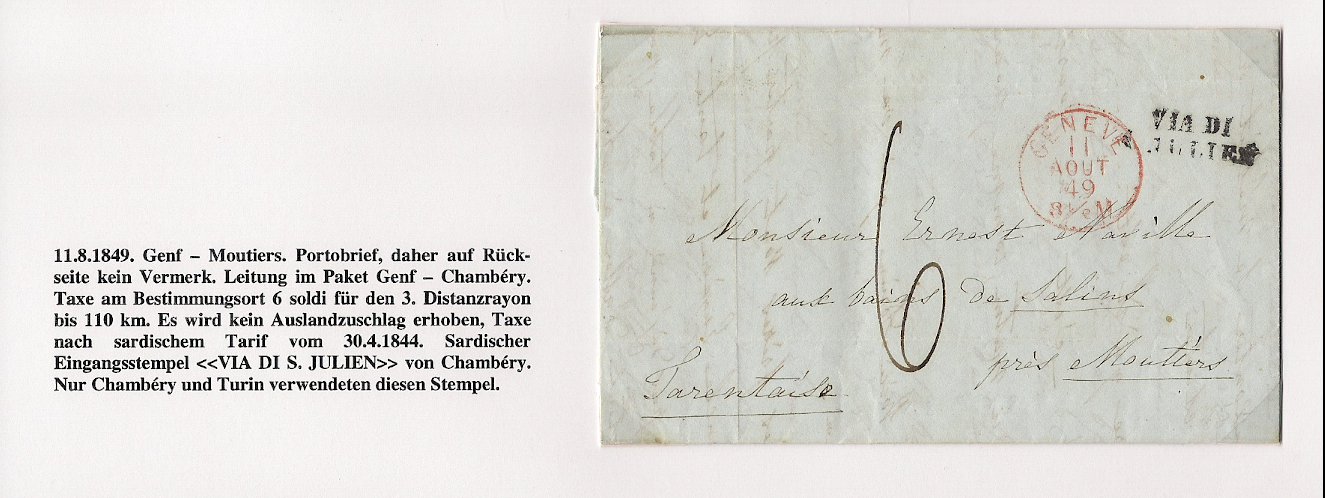 11.8.1849. Genf – Moutiers. Portobrief, daher auf Rück-
seite kein Vermerk. Leitung im Paket Genf – Chambéry.
Taxe am Bestimmungsort 6 soldi für den 3. Distanzrayon
bis 110 km. Es wird kein Auslandzuschlag erhoben, Taxe
nach sardischem Tarif vom 30.4.1844. Sardischer
Eingangsstempel <<VIA DI S. JULIEN>> von Chambéry.
Nur Chambéry und Turin verwendeten diesen Stempel.
VIA DI
JULIEN
GENEVE
11
AOUT
49
6
Monsieur Ernest Naville
aux bains de Salins
près Moutiers
Tarentaise